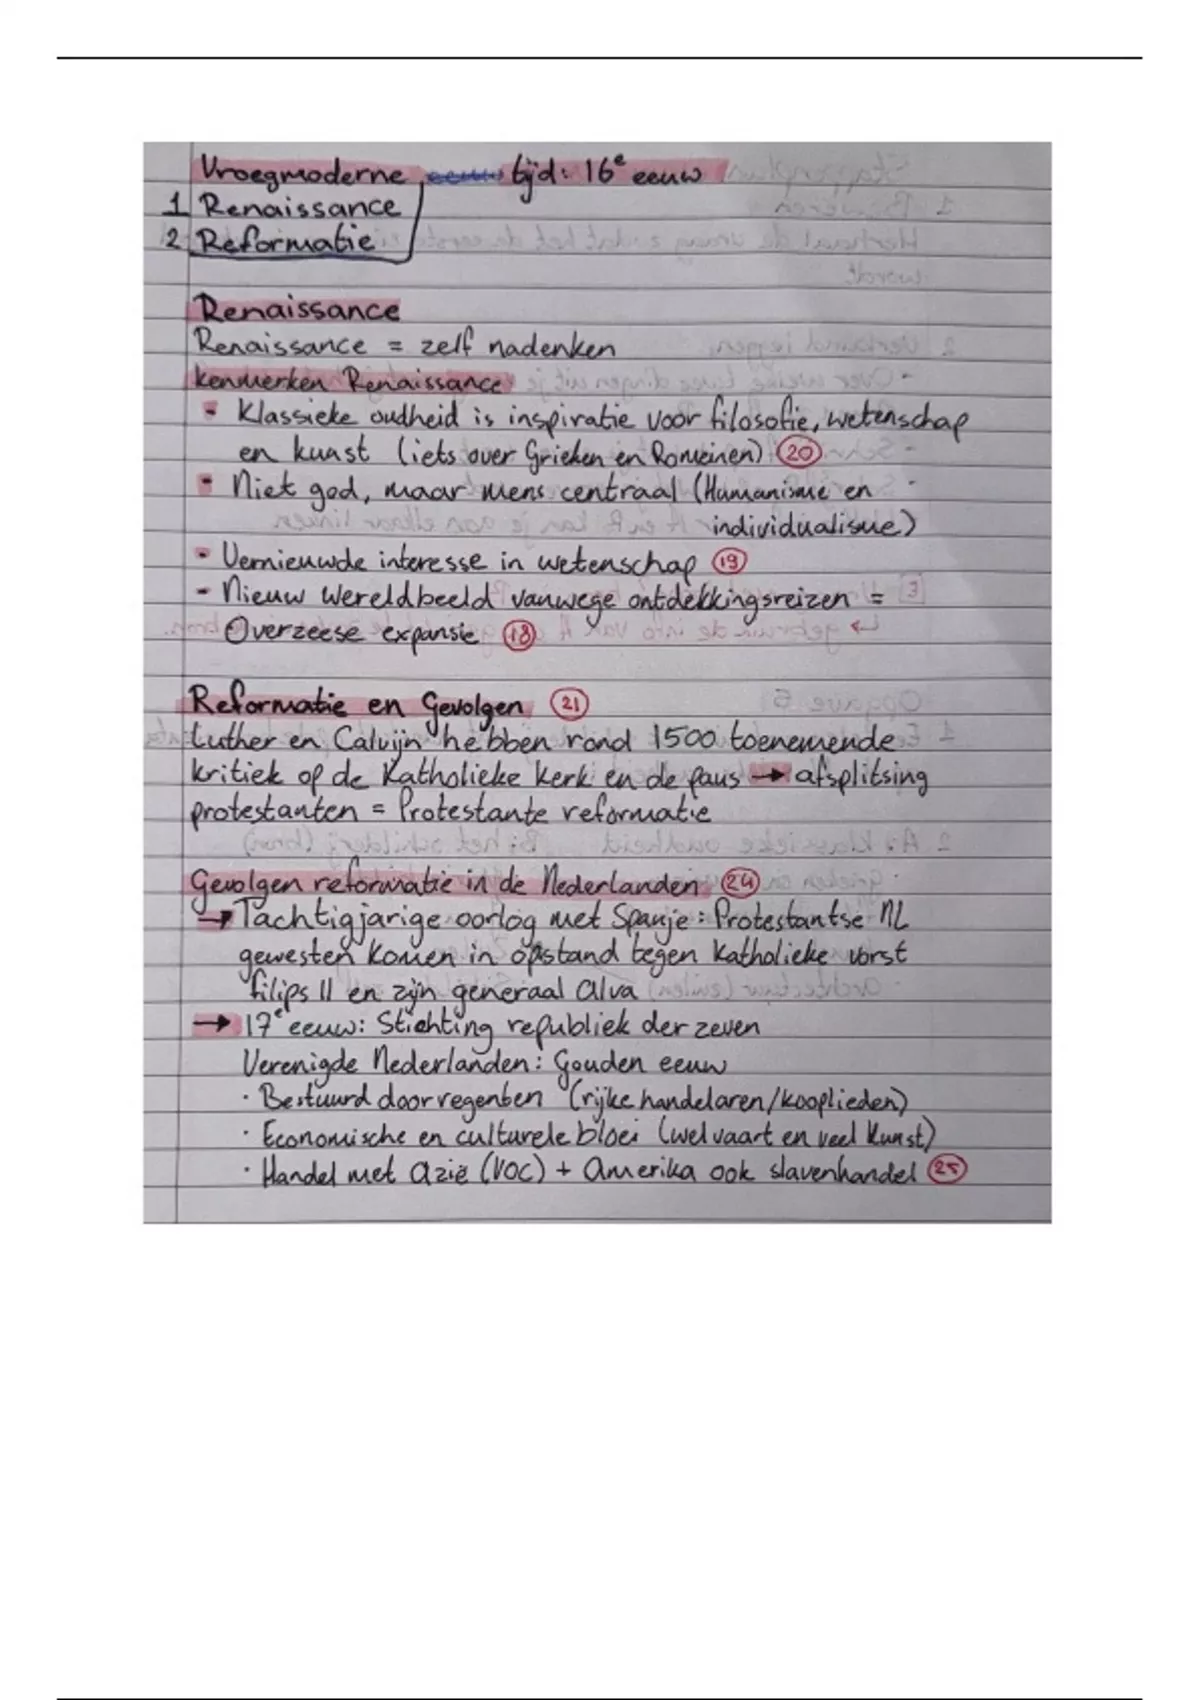 Vroegmoderne eeuw tijd: 16e eeuw
1 Renaissance
2 Reformatie
Renaissance
Renaissance = zelf nadenken
kenmerken Renaissance
- Klassieke oudheid is inspiratie voor filosofie, wetenschap
en kunst (iets over Grieken en Romeinen) 20
- Niet god, maar mens centraal (Humanisme en
individualisme)
- Vernieuwde interesse in wetenschap 19
- Nieuw wereldbeeld vanwege ontdekkingsreizen =
Overzeese expansie 18
Reformatie en Gevolgen 21
Luther en Calvijn hebben rond 1500 toenemende
kritiek op de Katholieke kerk en de paus → afsplitsing
protestanten = Protestante reformatie
Gevolgen reformatie in de Nederlanden 24
→ Tachtigjarige oorlog met Spanje: Protestantse NL
gewesten komen in opstand tegen Katholieke vorst
filips II en zijn generaal Alva
→ 17e eeuw: Stichting republiek der zeven
Verenigde Nederlanden: Gouden eeuw
· Bestuurd door regenten (rijke handelaren/kooplieden)
· Economische en culturele bloei (welvaart en veel Kunst)
· Handel met Azië (VOC) + Amerika ook slavenhandel 25